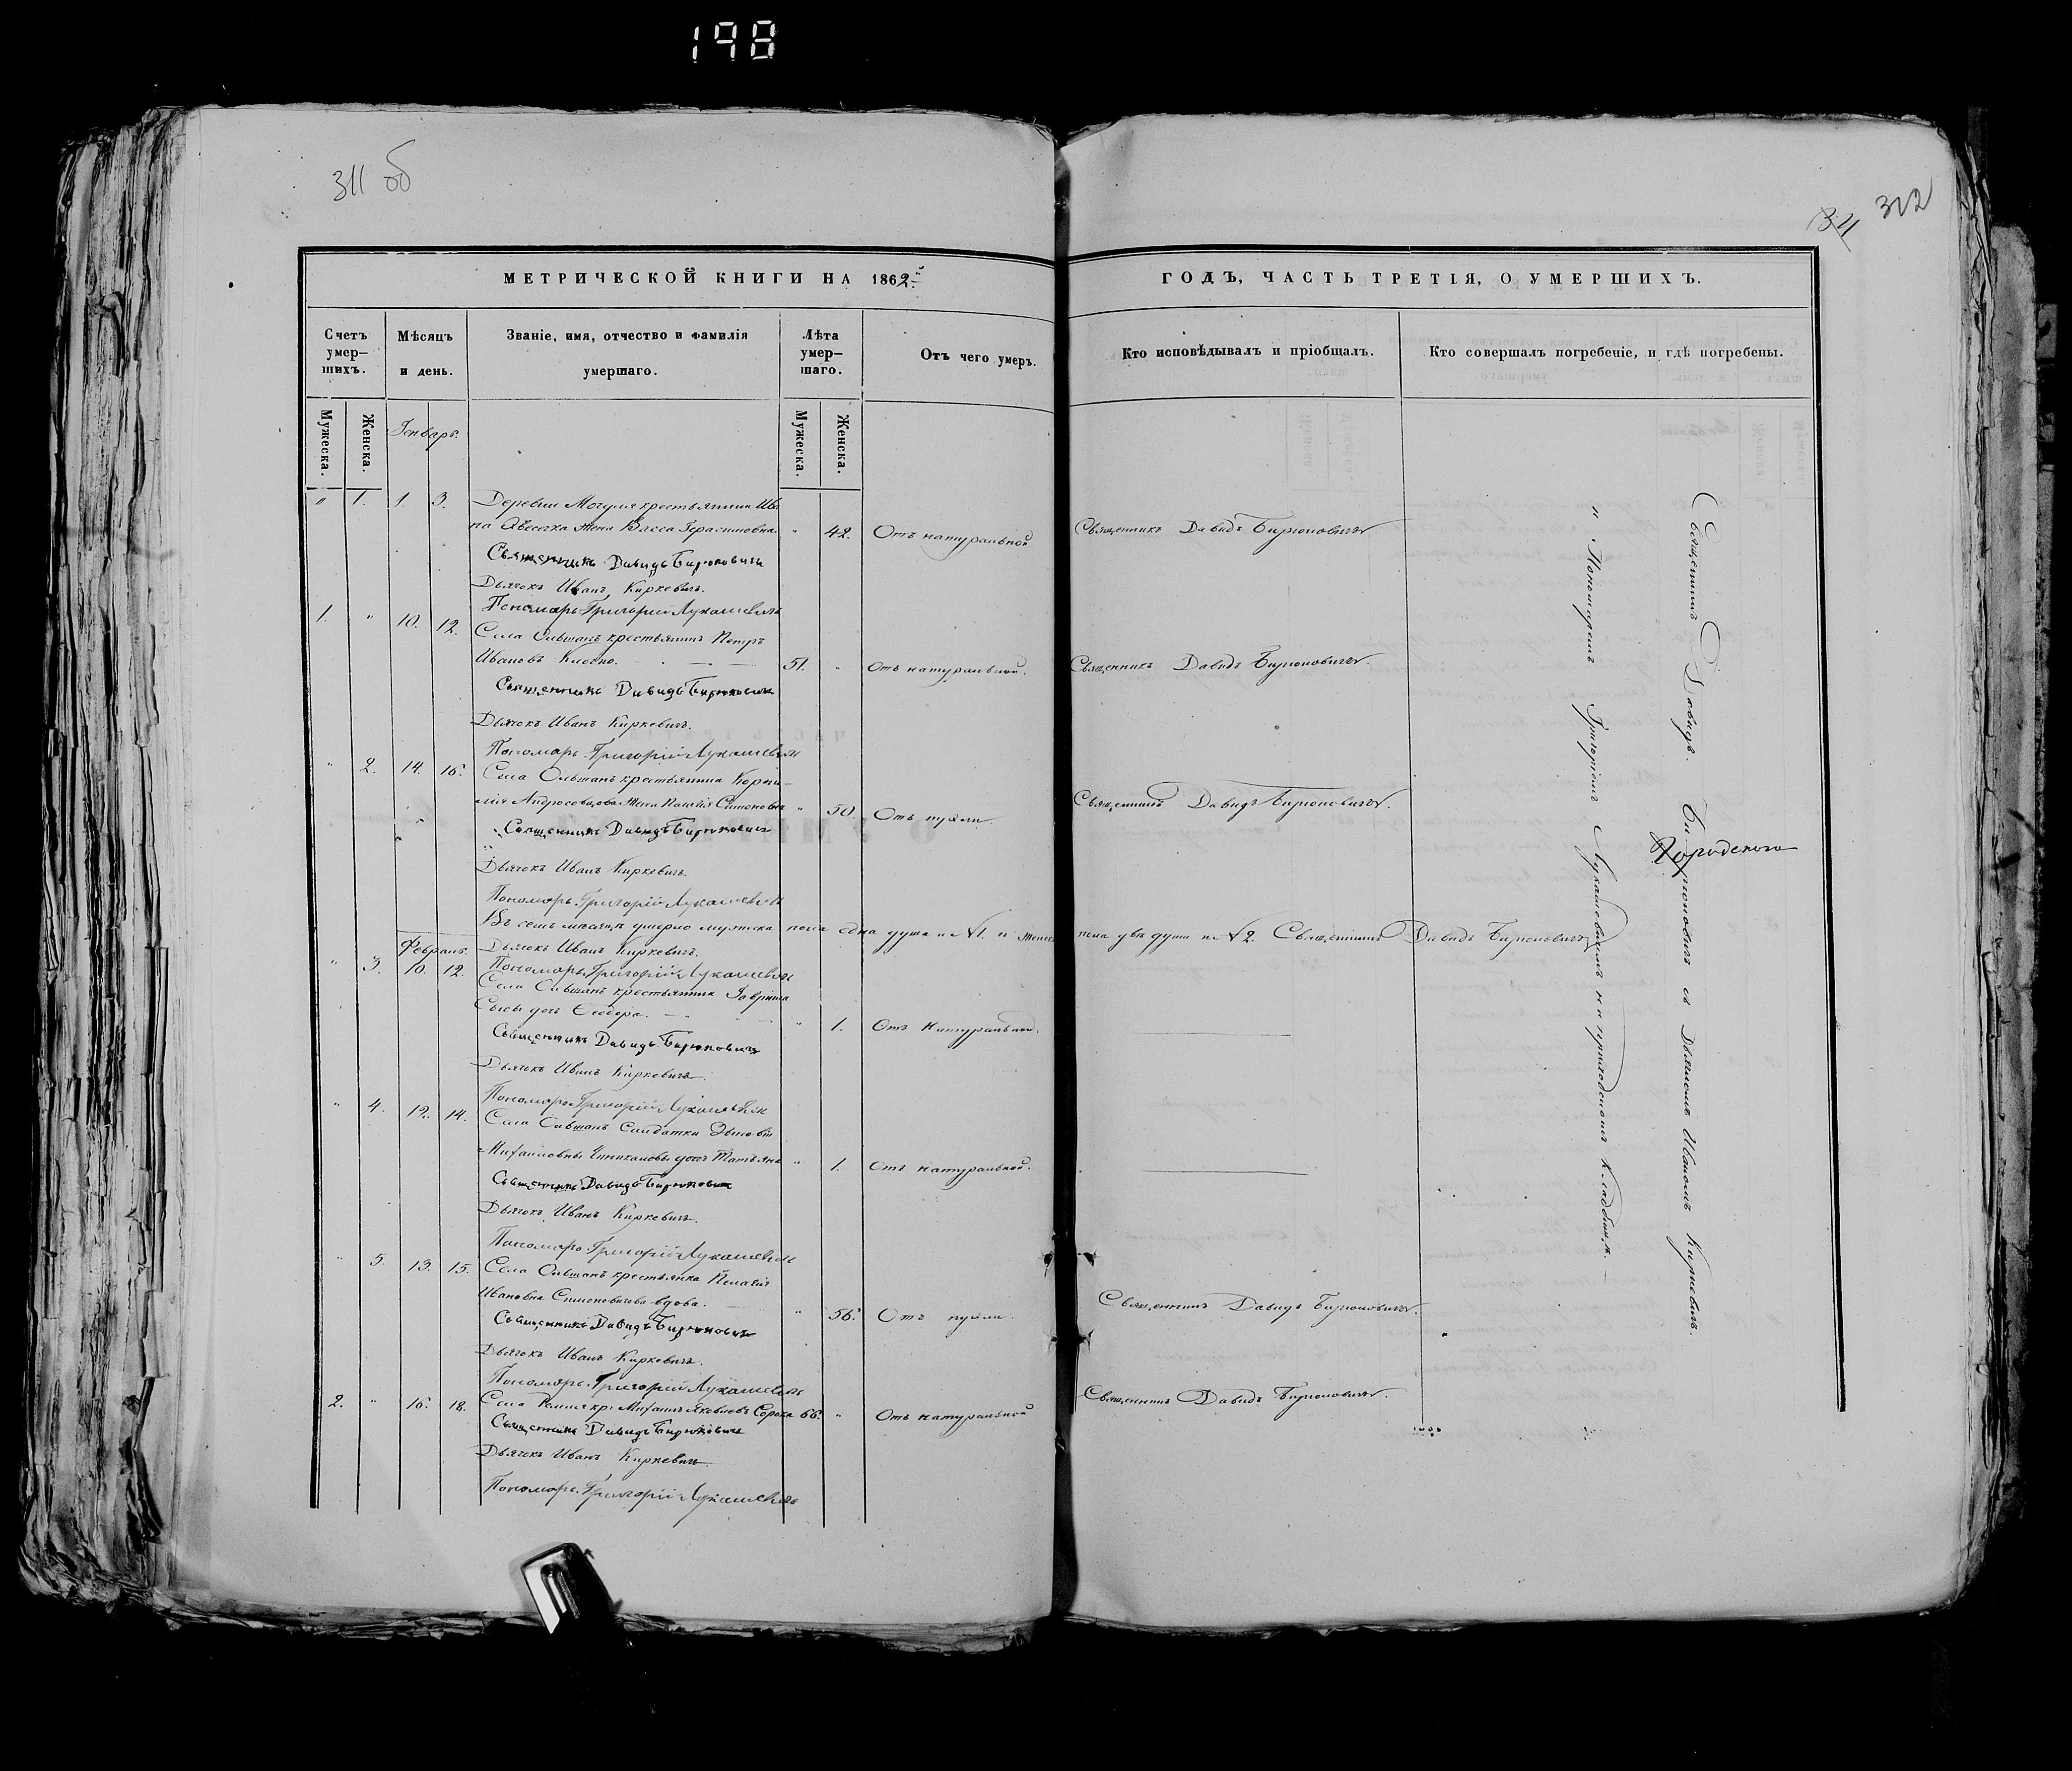 198
311 об
34 312
МЕТРИЧЕСКОЙ КНИГИ НА 1862й
ГОДЪ, ЧАСТЬ ТРЕТІЯ, О УМЕРШИХЪ.
Счетъ умер–шихъ.
Мѣсяцъ и день.
Званіе, имя, отчество и фамилія умершаго.
Лѣта умер–шаго.
Отъ чего умеръ.
Кто исповѣдывалъ и пріобщалъ.
Кто совершалъ погребеніе, и гдѣ погребены.
Мужеска. Женска.
Генварь.
Мужеска. Женска.
" 1. 1. 3. Деревни крестьянина Ива
на жена Васса Герасимовна. " 42. Отъ натуральной Священникъ Давидъ Бирюковичъ
Священникъ Давидъ Бирюковичъ
Дьячокъ Иванъ Киркевичъ.
Пономарь Григорій Лукашевичъ
1. " 10. 12. Села Ольшанъ крестьянинъ Петръ
Ивановъ 51. " Отъ натуральной. Священникъ Давидъ Бирюковичъ.
Священникъ Давидъ Бирюковичъ
Дьячокъ Иванъ Киркевичъ.
Пономарь Григорій Лукашевичъ
" 2. 14. 16. Села Ольшанъ крестьянина Корни–
лія жена Пелагія Симонова " 50. Отъ Священникъ Давидъ Бирюковичъ.
Священникъ Давидъ Бирюковичъ
Дьячокъ Иванъ Киркевичъ.
Пономарь Григорій Лукашевичъ
Въ семъ мѣсяцѣ умерло мужеска пола одна душа и женска пола двѣ души № 2. Священникъ Давидъ Бирюковичъ
Дьячокъ Иванъ Киркевичъ.
Февраль.
Пономарь Григорій Лукашевичъ
" 3. 10. 12. Села Ольшанъ крестьянина Гавріила
дочь Ѳеодора. " 1. Отъ Натуральной.
Священникъ Давидъ Бирюковичъ
Дьячокъ Иванъ Киркевичъ.
Пономарь Григорій Лукашевичъ
" 4. 12. 14. Села Ольшанъ Солдатки
Михайловны дочь Татьяна " 1. Отъ натуральной.
Священникъ Давидъ Бирюковичъ
Дьячокъ Иванъ Киркевичъ.
Пономарь Григорій Лукашевичъ
" 5. 13. 15. Села Ольшанъ крестьянка Пелагія
Ивановна Симоновичова вдова. " 56. Отъ Священникъ Давидъ Бирюковичъ.
Священникъ Давидъ Бирюковичъ
Дьячокъ Иванъ Киркевичъ.
Пономарь Григорій Лукашевичъ
2. " 16. 18. Села кр: Михаилъ Яковлевъ Сорока 66. " Отъ натуральной Священникъ Давидъ Бирюковичъ.
Священникъ Давидъ Бирюковичъ
Дьячокъ Иванъ Киркевичъ.
Пономарь Григорій Лукашевичъ
Священникъ Давидъ Бирюковичъ съ Дьячкомъ Иваномъ Киркевичъ.
и Пономаремъ Григоріемъ Лукашевичемъ на приходскомъ кладбищѣ.
Городского